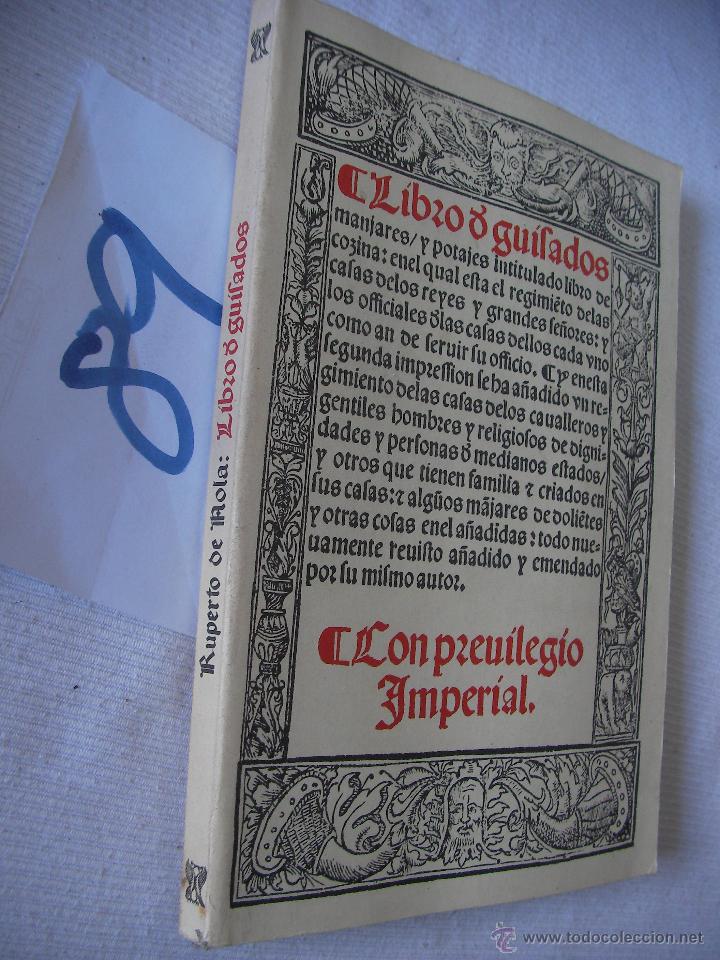 ¶Libro đ guisados
manjares/ y potajes intitulado libro de
cozina: enel qual esta el regimiẽto delas
casas delos reyes y grandes señores: y
los officiales đlas casas dellos cada vno
como an de seruir su officio. Cy enesta
segunda impression se ha añadido vn re-
gimiento delas casas delos caualleros y
gentiles hombres y religiosos de digni-
dades y personas đ medianos estados/
y otros que tienen familia ⁊ criados en
sus casas: ⁊ algũos mãjares de doliẽtes
y otras cosas enel añadidas: todo nue-
uamente reuisto añadido y emendado
por su mismo autor.
¶Con preuilegio
Imperial.
Ruperto de Nola: Libro đ guisados
89
www.todocoleccion.net